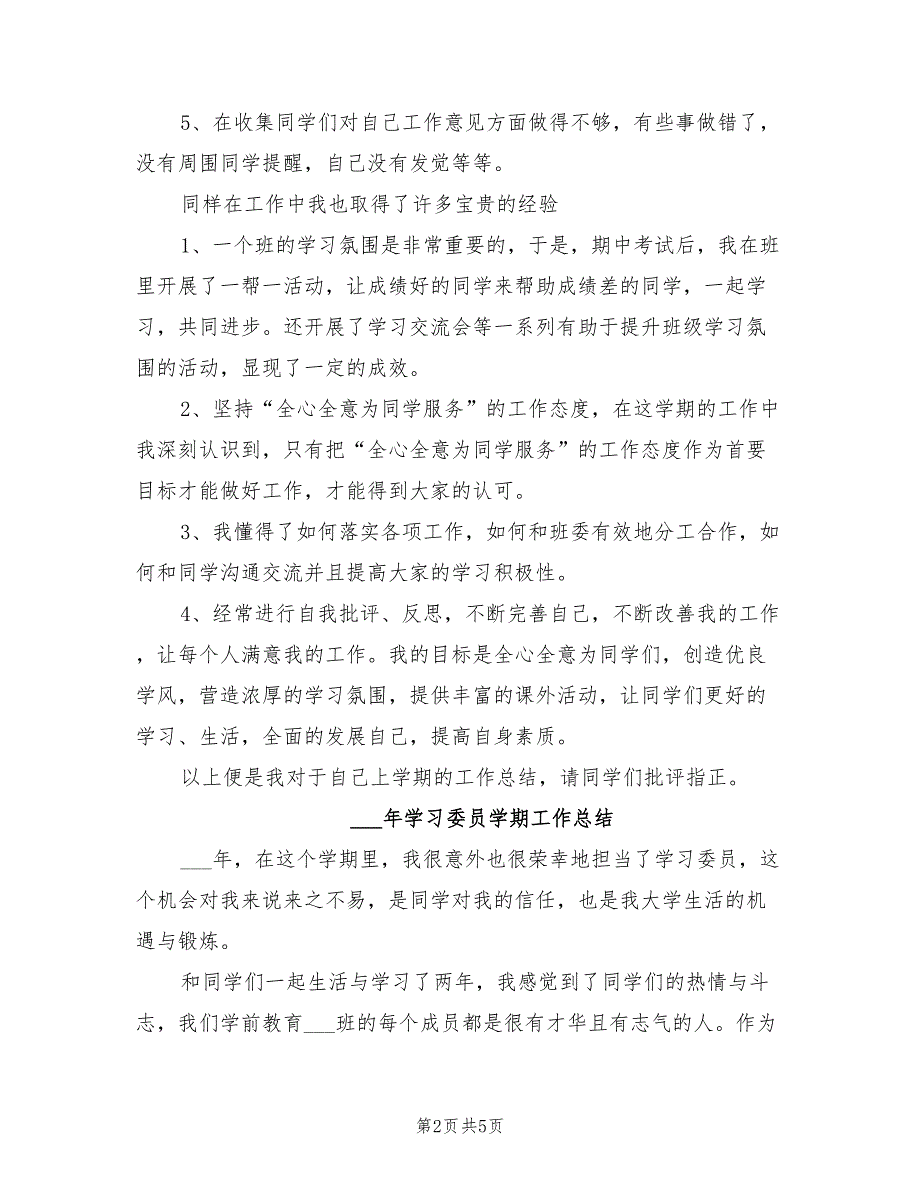 5、在收集同学们对自己工作意见方面做得不够，有些事做错了，
没有周围同学提醒，自己没有发觉等等。
同样在工作中我也取得了许多宝贵的经验
1、一个班的学习氛围是非常重要的，于是，期中考试后，我在班
里开展了一帮一活动，让成绩好的同学来帮助成绩差的同学，一起学
习，共同进步。还开展了学习交流会等一系列有助于提升班级学习氛
围的活动，显现了一定的成效。
2、坚持“全心全意为同学服务”的工作态度，在这学期的工作中
我深刻认识到，只有把“全心全意为同学服务”的工作态度作为首要
目标才能做好工作，才能得到大家的认可。
3、我懂得了如何落实各项工作，如何和班委有效地分工合作，如
何和同学沟通交流并且提高大家的学习积极性。
4、经常进行自我批评、反思，不断完善自己，不断改善我的工作
，让每个人满意我的工作。我的目标是全心全意为同学们，创造优良
学风，营造浓厚的学习氛围，提供丰富的课外活动，让同学们更好的
学习、生活，全面的发展自己，提高自身素质。
以上便是我对于自己上学期的工作总结，请同学们批评指正。
___年学习委员学期工作总结
___年，在这个学期里，我很意外也很荣幸地担当了学习委员，这
个机会对我来说来之不易，是同学对我的信任，也是我大学生活的机
遇与锻炼。
和同学们一起生活与学习了两年，我感觉到了同学们的热情与斗
志，我们学前教育___班的每个成员都是很有才华且有志气的人。作为
第2页 共5页